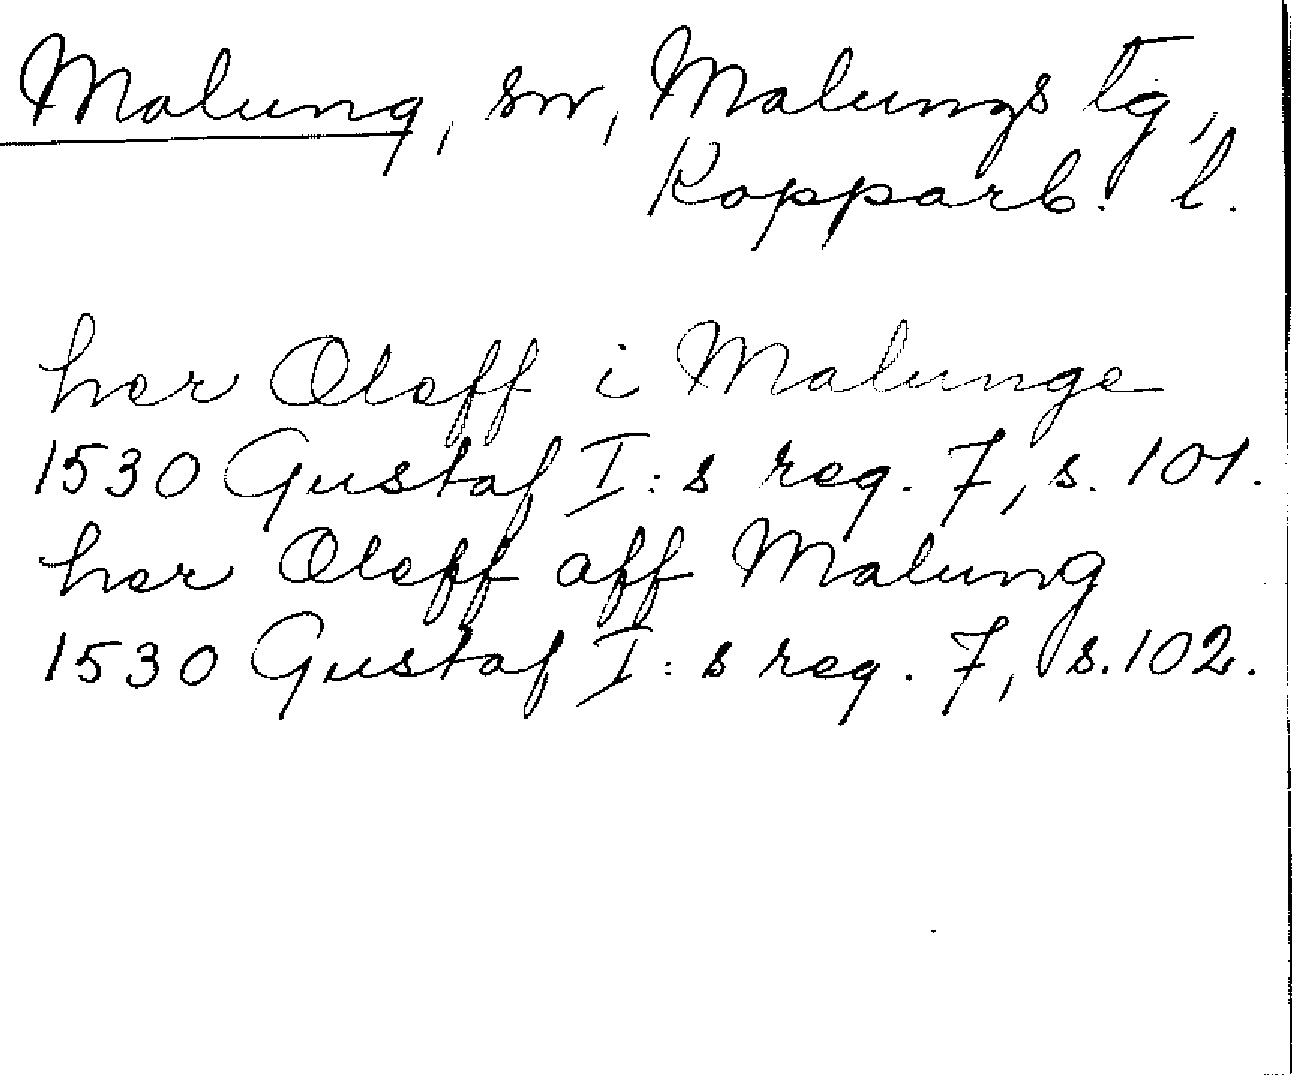 Malung, sn, Malungs tg,
Kopparb. l.
her Oleff i Malunge
1530 Gustaf I:s reg. 7, s. 101.
her Oleff aff Malung
1530 Gustaf I:s reg. 7, s. 102.